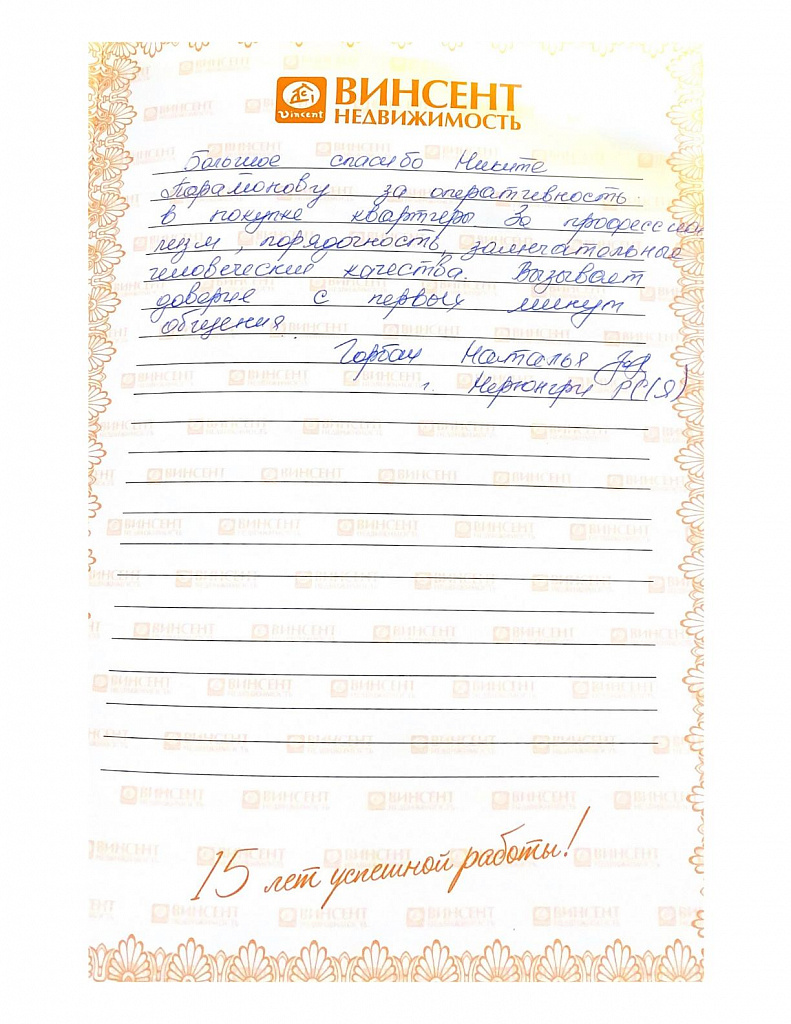 Vincent
ВИНСЕНТ
НЕДВИЖИМОСТЬ
Большое спасибо Никите
Парамонову за оперативность
в покупке квартиры За профессион
лезм, порядочность, замечательные
человеческие качества. Вызывает
доверие с первых минут
общения.
Горбач Наталья
г. Нерюнгри РС(Я)
15 лет успешной работы!